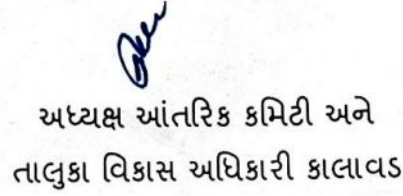 અધ્યક્ષ આંતરિક કમિટી અને
તાલુકા વિકાસ અધિકારી કાલાવડ